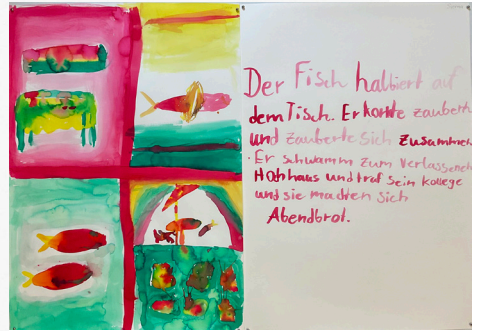 Der Fisch halbiert auf
dem Tisch. Er konte zaubern
und zauberte sich zusammen.
Er schwamm zum verlassenen
Hohhaus und traf sein kollege
und sie machten sich
Abendbrot.